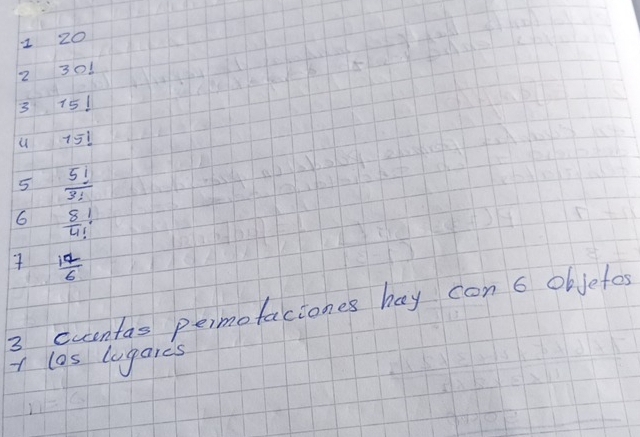 1 20
2 30!
3 15!
4 15!
5 5!/3!
6 8!/4!
7 12/6
3 cuentas permotaciones hay con 6 objetos
+ los lugares